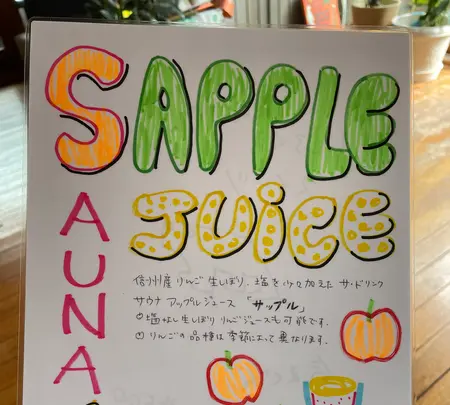 SAPPLE
JUiCE
SAUNA
信州産りんご生しぼり、塩を少々加えた サ・ドリンク
サウナ アップルジュース 「サップル」
塩なし生しぼりりんごジュースも可能です.
りんごの品種は季節によって異なります.